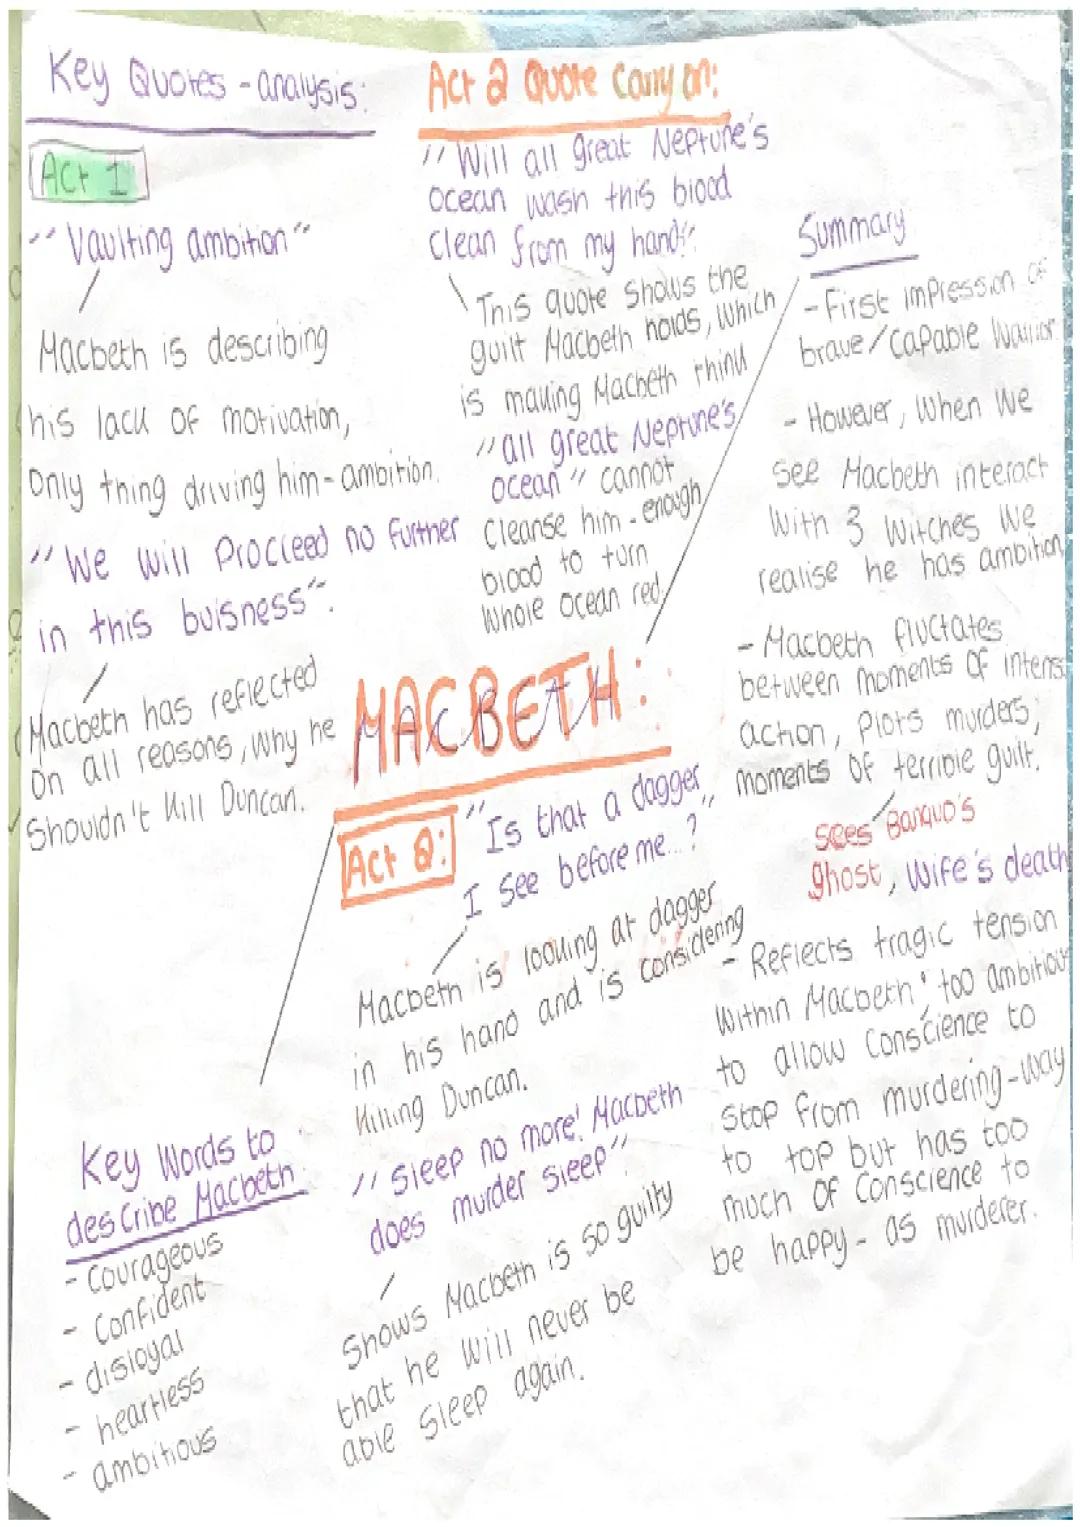 Key Quotes - analysis:
Act 1
"Vaulting ambition"
Macbeth is describing
his lack of motivation,
only thing driving him - ambition.
"We will Procceed no further
in this buisness".
Macbeth has reflected
on all reasons, why he
Shouldn't kill Duncan.
Act 2 Quote Carry on:
"Will all great Neptune's
ocean wash this blood
clean from my hand?"
This quote shows the
guilt Macbeth holds, which
is making Macbeth think
"all great Neptune's
ocean" cannot
cleanse him - enough
blood to turn
whole ocean red.
MACBETH:
Act 2:
"Is that a dagger
I see before me...?"
Macbeth is looking at dagger
in his hand and is considering
killing Duncan.
"Sleep no more! Macbeth
does murder sleep".
Shows Macbeth is so guilty
that he will never be
able sleep again.
Key Words to
describe Macbeth
- Courageous
- Confident
- disloyal
- heartless
- ambitious
Summary
- First impression of
brave/capable warrior
- However, when we
see Macbeth interact
with 3 witches we
realise he has ambition
- Macbeth fluctates
between moments of intense
action, Plots murders;
moments of terrible guilt.
sees Banquo's
ghost, wife's death
- Reflects tragic tension
within Macbeth; too ambitious
to allow conscience to
stop from murdering - way
to top but has too
much of conscience to
be happy - as murderer.